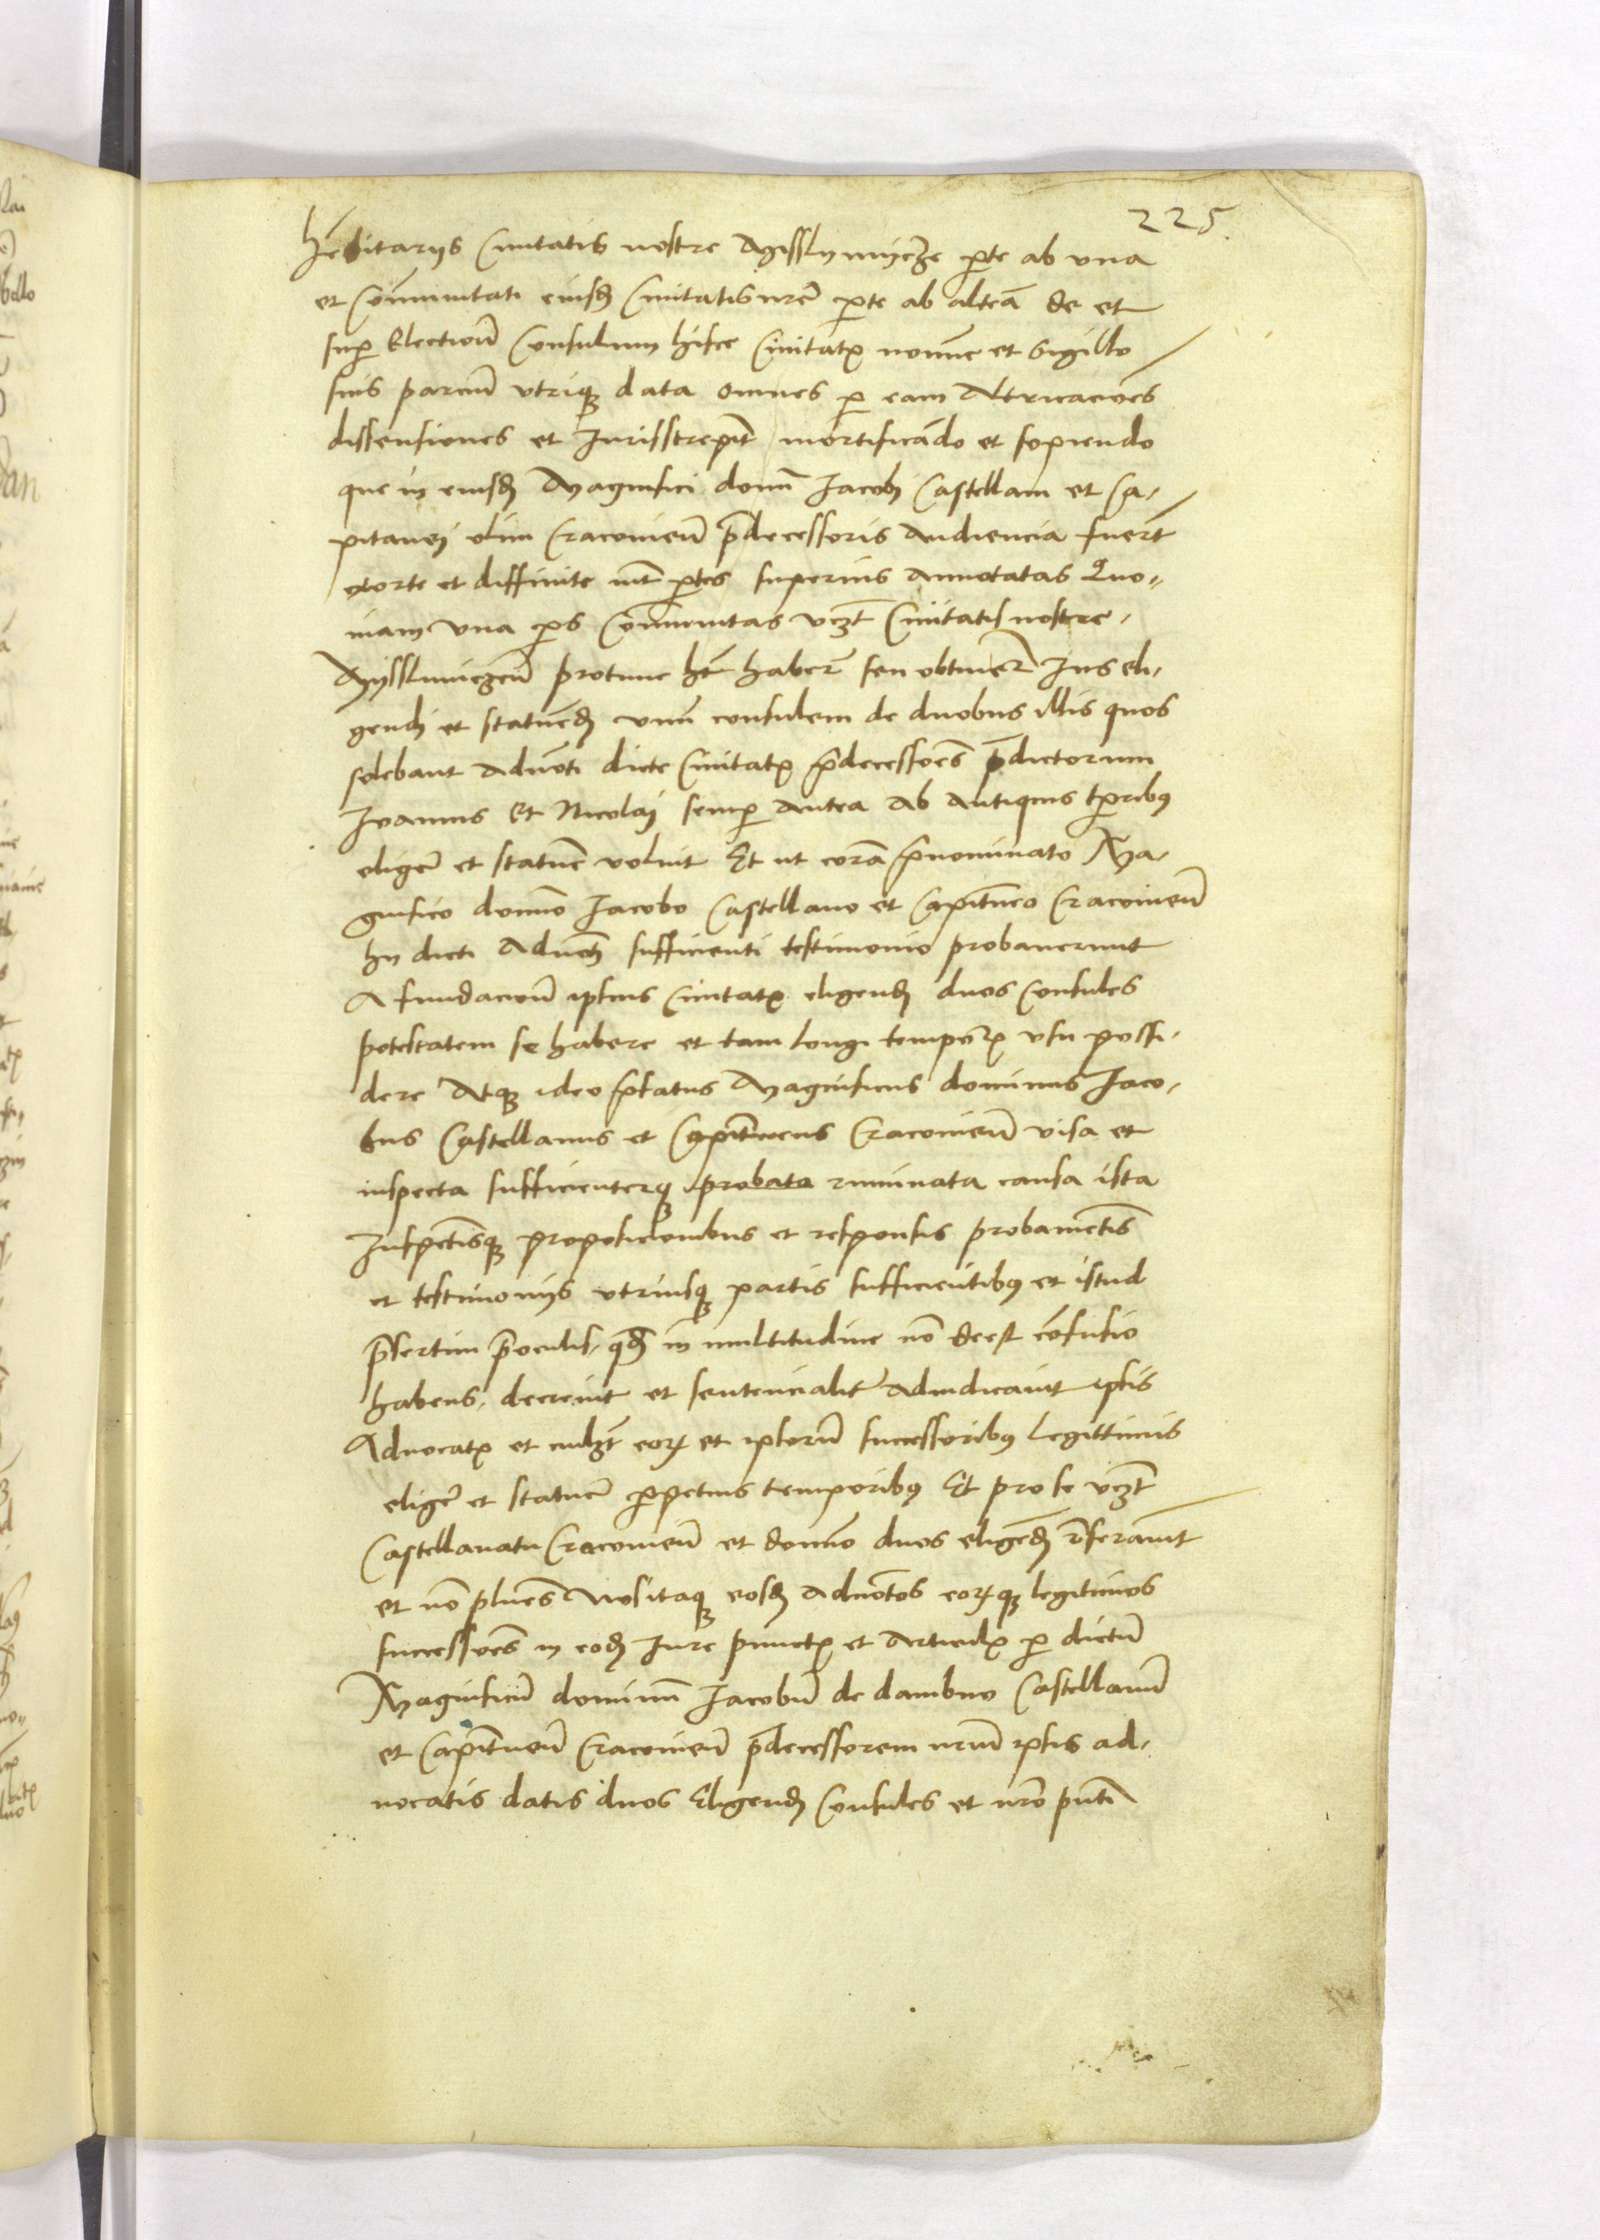 225
hereditariis Civitatis nostre Mysslymycze pte ab vna
et Coitati eiusd Civitatis nre pte ab altera de et
sup Electioni Consulum huiusce Civitatis nomine et Sigillo
suis parcium vtriq data omnes p eam Altricaciones
dissensiones et Jurisstrepit mortificando et sopiendo
que in eiusd Magnifici domi Jacobi Castellani et Ca-
pitanei olim Cracoviens pdecessoris Audiencia fuert
exorte et diffinite int ptes superius Annotatas Quo-
niam vna ps Coitas vczt Civitatis nostre
Mysslimiczens protunc hre haber seu obtiner Jus eli-
gendi et statuend vnu consulem de duobus illis quos
solebant Advoti dicte Civitatis pdecessores pdictorum
Joannis Et Nicolai semp antea Ab Antiquis tpribus
eliger et statuer voluit Et ut cora pnominato Ma-
gnifico domino Jacobo Castellano et Capitneo Cracoviens
hy dicti Advocati sufficienti testimonio probaverunt
A fundacione ipsius Civitatis eligend duos Consules
potestatem se habere et tam longi temporis vsu possi-
dere Atq ideo pfatus Magnificus dominus Jaco-
bus Castellanus et Capitneus Cracoviens visa et
inspecta sufficienterq probata ruminata causa ista
Inspectisq proposicionibus et responsis probamentis
et testimoniis vtriusq partis sufficientibus et istud
psertim p oculis qd in multitudine no deest confusio
habens decrevit et sentencialiter Adiudicavit ipsis
Advocatis et cuilzt eor et ipsoru successoribus Legittimis
eliger et statuer ppetuis temporibus Et pro se vczt
Castellanatu Cracoviens et domino duos eligend rservavit
et no plures Nos itaq eosd Advotos eorq legitimos
successores in eod Jure punctis et Articulis p dictu
Magnificu dominu Jacobu de dambno Castellanu
et Capitneu Cracoviens pdecessorem nrum ipsis ad-
vocatis datis duos Eligend Consules et nro pnti